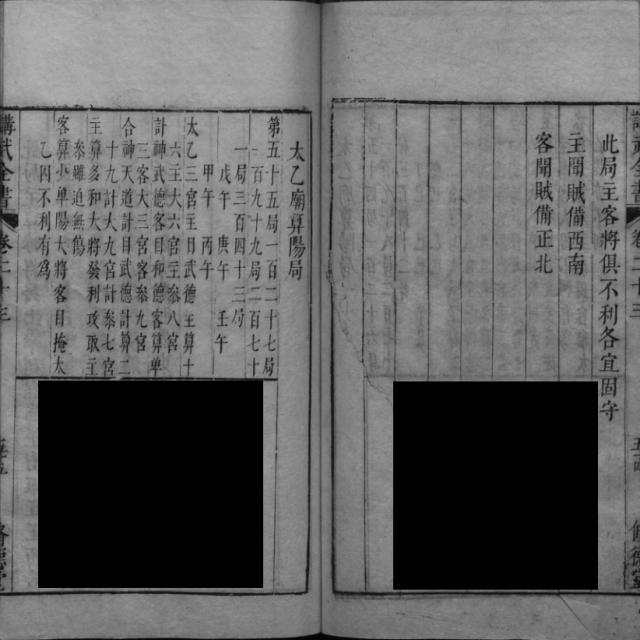 此局主客將俱不利各宜固守
主聞賊備西南
客聞賊備正北
太乙廟算陽局
第五十五局一百二十七局
一百九十九局二百七十
一局三百四十三局
戊午 庚午 壬午
甲午 丙午
太乙二宮主目武德主算十
六主大六宮主參八宮
計神武德客目和德客算單
三客大三宮客參九宮
合神天道計目武德計算二
十九計大九宮計參七宮
主算多和大將發利攻取主
參雖迫無傷
客算小單陽大將客目掩太
乙因不利有為